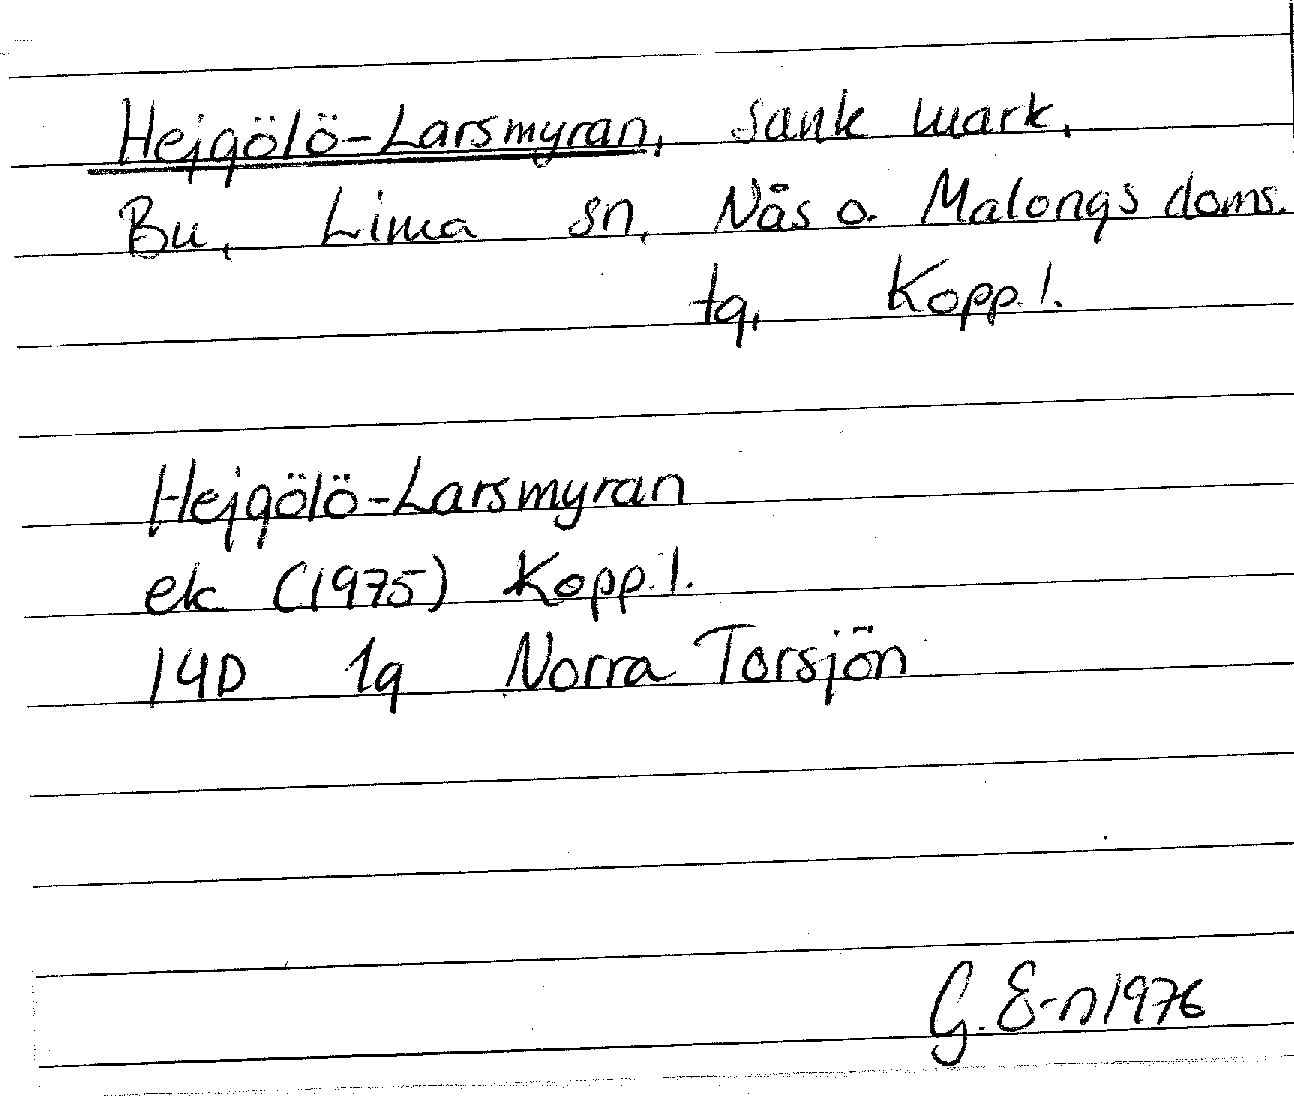 Hejgölö-Larsmyran, sank mark,
Bu, Lima sn, Nås o. Malungs doms.
tg, Kopp.l.
Hejgölö-Larsmyran
ek (1975) Kopp.l.
14D 1g Norra Torsjön
G. E-n 1976